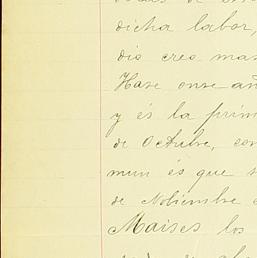 dicha labor,
dio creo mas
Hase onse añ
y és la prim
de Octubre, con
mun és que s
de Nobiembre
Maises los